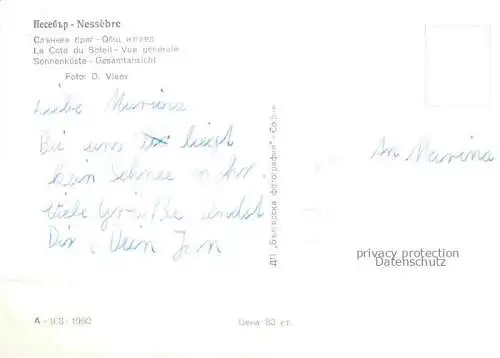 Несебър - Nessèbre
Слънчев бряг - Общ изглед
La Côte du Soleil - Vue générale
Sonnenküste - Gesamtansicht
Foto: D. Vlaev
Liebe Marina
Bei uns liegt
kein Schnee mehr.
Viele Grüße
Dir, Dein Jan
ДП „Българска фотография" - София
An Marina
privacy protection
Datenschutz
А - ICS - 1960
Цена 80 ст.